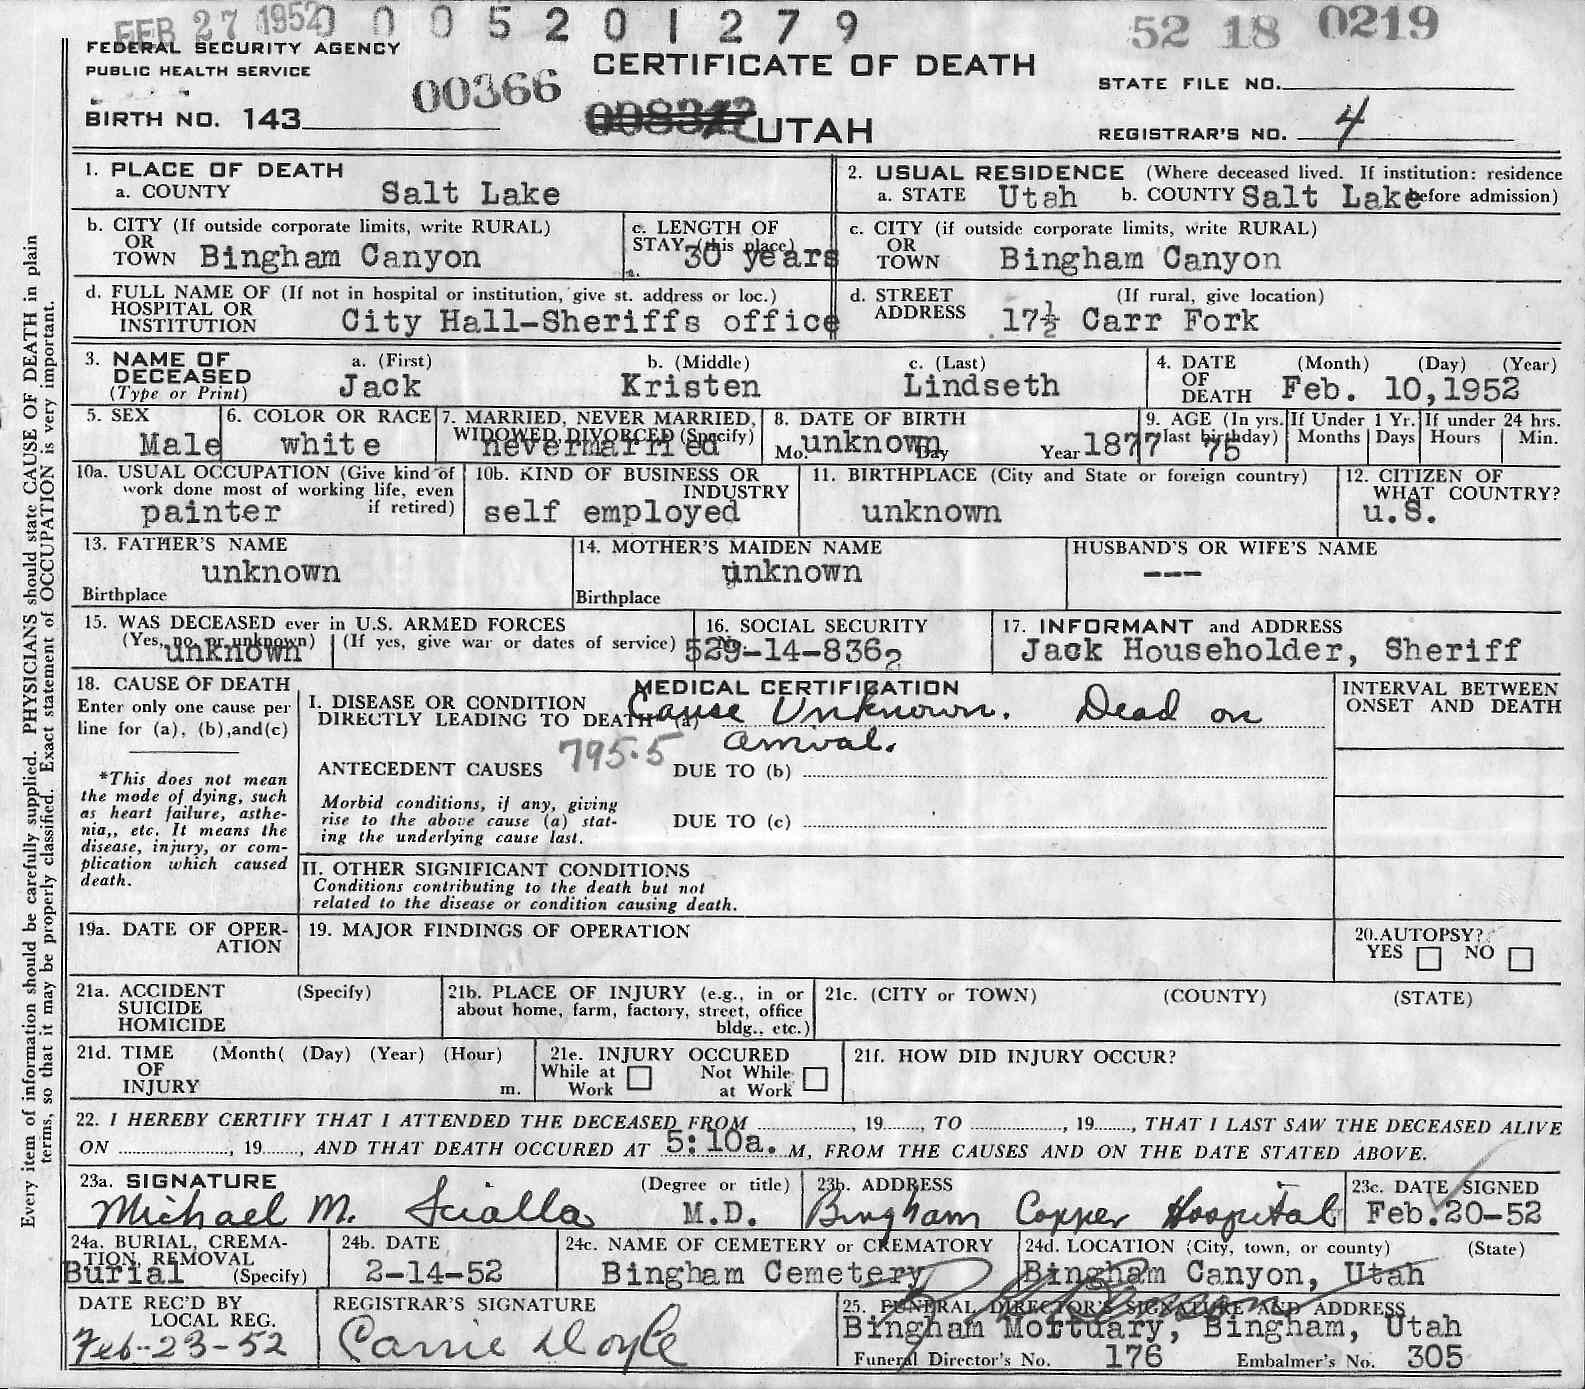 FEB 27 1952 0 0 0 5 2 0 1 2 7 9
52 18 0219
FEDERAL SECURITY AGENCY
PUBLIC HEALTH SERVICE
00366
CERTIFICATE OF DEATH
STATE FILE NO.
BIRTH NO. 143
UTAH
REGISTRAR'S NO. 4
1. PLACE OF DEATH
a. COUNTY Salt Lake
2. USUAL RESIDENCE (Where deceased lived. If institution: residence before admission)
a. STATE Utah b. COUNTY Salt Lake
b. CITY (If outside corporate limits, write RURAL)
OR
TOWN Bingham Canyon
c. LENGTH OF
STAY (this place)
30 years
c. CITY (if outside corporate limits, write RURAL)
OR
TOWN Bingham Canyon
d. FULL NAME OF (If not in hospital or institution, give st. address or loc.)
HOSPITAL OR
INSTITUTION City Hall-Sheriffs office
d. STREET (If rural, give location)
ADDRESS 17½ Carr Fork
3. NAME OF
DECEASED
(Type or Print)
a. (First) b. (Middle) c. (Last)
Jack Kristen Lindseth
4. DATE (Month) (Day) (Year)
OF
DEATH Feb. 10,1952
5. SEX
Male
6. COLOR OR RACE
white
7. MARRIED, NEVER MARRIED,
WIDOWED, DIVORCED (Specify)
nevermarried
8. DATE OF BIRTH
Mo. unknown Day Year 1877
9. AGE (In yrs. last birthday)
75
If Under 1 Yr.
Months Days
If under 24 hrs.
Hours Min.
10a. USUAL OCCUPATION (Give kind of
work done most of working life, even
if retired)
painter
10b. KIND OF BUSINESS OR
INDUSTRY
self employed
11. BIRTHPLACE (City and State or foreign country)
unknown
12. CITIZEN OF
WHAT COUNTRY?
u.S.
13. FATHER'S NAME
unknown
Birthplace
14. MOTHER'S MAIDEN NAME
unknown
Birthplace
HUSBAND'S OR WIFE'S NAME
---
15. WAS DECEASED ever in U.S. ARMED FORCES
(Yes, no, or unknown) (If yes, give war or dates of service)
unknown
16. SOCIAL SECURITY
No.
529-14-8362
17. INFORMANT and ADDRESS
Jack Householder, Sheriff
18. CAUSE OF DEATH
Enter only one cause per
line for (a), (b),and(c)
*This does not mean
the mode of dying, such
as heart failure, asthe-
nia,, etc. It means the
disease, injury, or com-
plication which caused
death.
MEDICAL CERTIFICATION
I. DISEASE OR CONDITION
DIRECTLY LEADING TO DEATH* (a) Cause Unknown. Dead on
arrival.
795.5
ANTECEDENT CAUSES DUE TO (b)
Morbid conditions, if any, giving
rise to the above cause (a) stat-
ing the underlying cause last.
DUE TO (c)
INTERVAL BETWEEN
ONSET AND DEATH
II. OTHER SIGNIFICANT CONDITIONS
Conditions contributing to the death but not
related to the disease or condition causing death.
19a. DATE OF OPER-
ATION
19. MAJOR FINDINGS OF OPERATION
20.AUTOPSY?
YES NO
21a. ACCIDENT (Specify)
SUICIDE
HOMICIDE
21b. PLACE OF INJURY (e.g., in or
about home, farm, factory, street, office
bldg., etc.)
21c. (CITY or TOWN) (COUNTY) (STATE)
21d. TIME (Month( (Day) (Year) (Hour)
OF
INJURY m.
21e. INJURY OCCURED
While at Work Not While at Work
21f. HOW DID INJURY OCCUR?
22. I HEREBY CERTIFY THAT I ATTENDED THE DECEASED FROM , 19 , TO , 19 , THAT I LAST SAW THE DECEASED ALIVE
ON , 19 , AND THAT DEATH OCCURED AT 5:10a. M, FROM THE CAUSES AND ON THE DATE STATED ABOVE.
23a. SIGNATURE (Degree or title)
Michael M. Scialla M.D.
23b. ADDRESS
Bingham Copper Hospital
23c. DATE SIGNED
Feb. 20-52
24a. BURIAL, CREMA-
TION, REMOVAL
Burial (Specify)
24b. DATE
2-14-52
24c. NAME OF CEMETERY or CREMATORY
Bingham Cemetery
24d. LOCATION (City, town, or county) (State)
Bingham Canyon, Utah
DATE REC'D BY
LOCAL REG.
Feb-23-52
REGISTRAR'S SIGNATURE
Carrie Doyle
25. FUNERAL DIRECTOR'S SIGNATURE AND ADDRESS
Bingham Mortuary, Bingham, Utah
Funeral Director's No. 176 Embalmer's No. 305
Every item of information should be carefully supplied. PHYSICIANS should state CAUSE OF DEATH in plain
terms, so that it may be properly classified. Exact statement of OCCUPATION is very important.